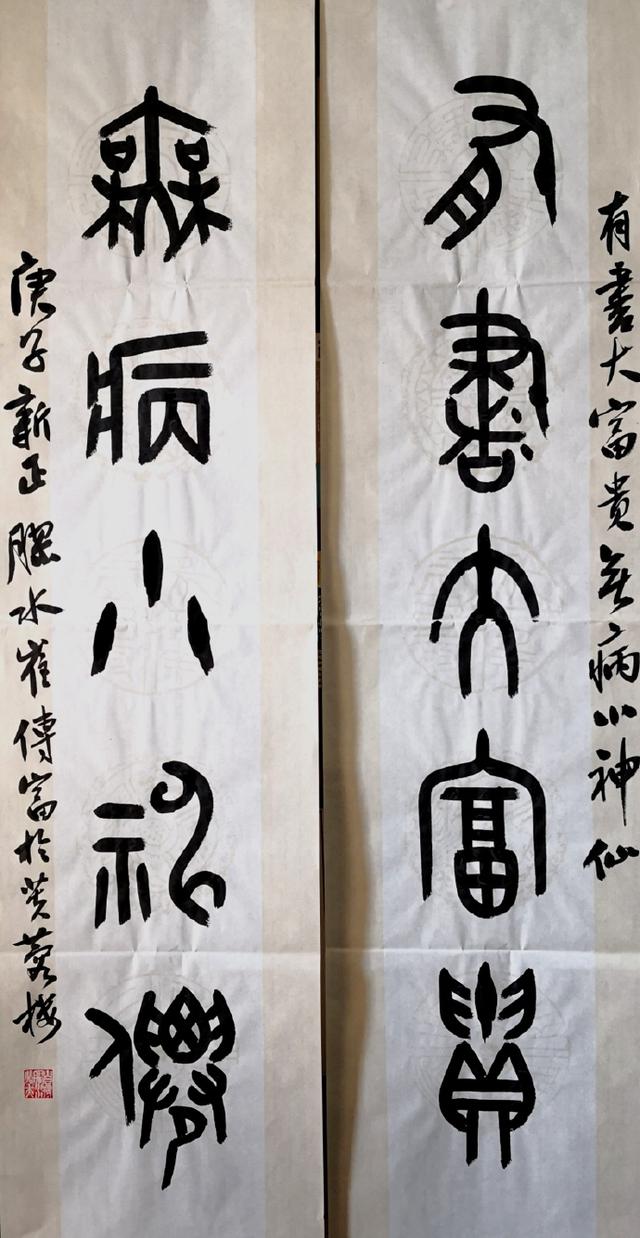 有書大富貴無病小神仙
有書大富貴
無病小神僊
庚子新正膠水崔傳富於芙蓉樓